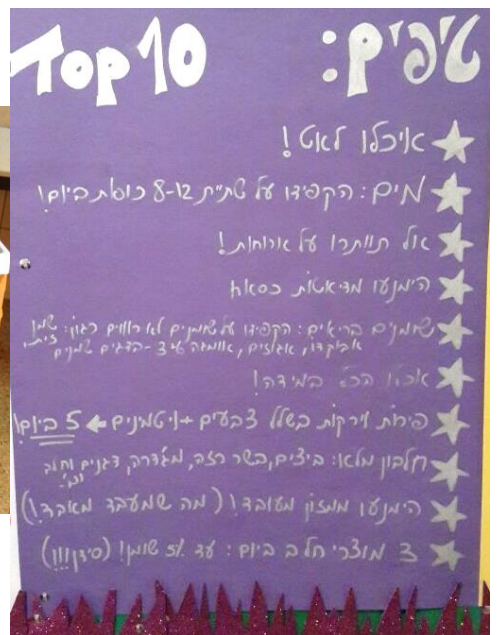 טיפים: Top 10
איכלו לאט!
מים: הקפידו על שתיית 8-12 כוסות ביום!
אל תוותרו על ארוחות!
הימנעו מדיאטות כסאח
שומנים בריאים: הקפידו על שומנים לא רווים כגון: שמן זית,
אבוקדו, אגוזים, אומגה 3 - בדגים שמנים
אכלו הכל במידה!
פירות וירקות בשלל צבעים + ויטמינים ← 5 ביום!
חלבון מלא: ביצים, בשר רזה, מג'דרה, דגנים וחלב
הימנעו ממזון מעובד! (מה שמעבד מאבד!)
3 מוצרי חלב ביום: עד 5% שומן! (סידן!!!)